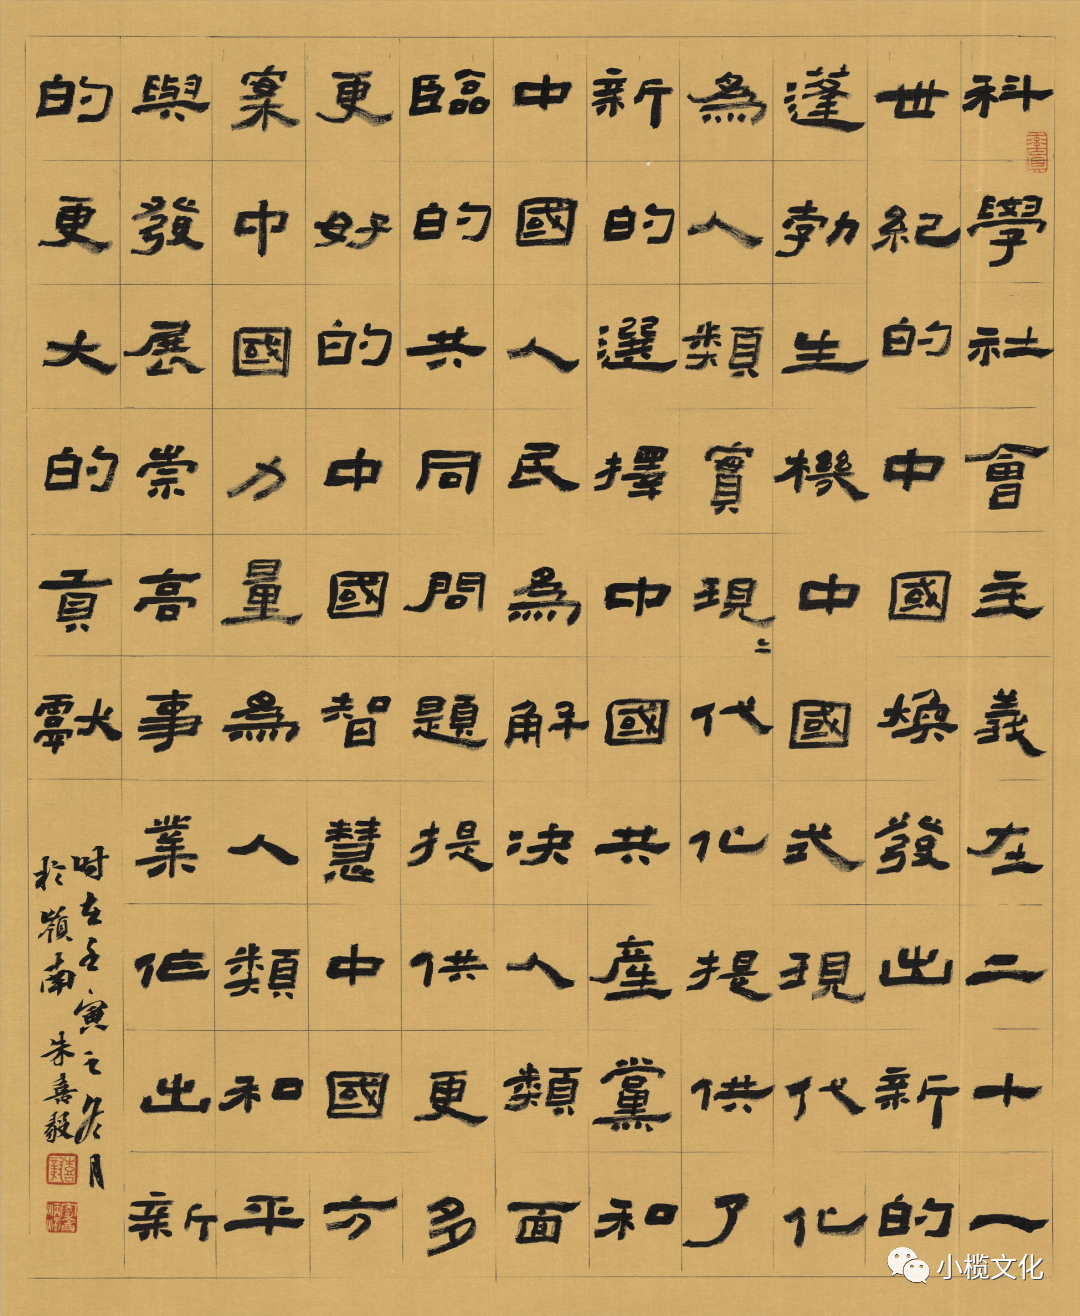 科學社會主義在二十一
世紀的中國煥發出新的
蓬勃生機中國式現代化
為人類實現〻代化提供了
新的選擇中國共產黨和
中國人民為解決人類面
臨的共同問題提供更多
更好的中國智慧中國方
案中國力量為人類和平
與發展崇高事業作出新
的更大的貢獻
时在壬寅之冬月
於嶺南朱喜毅
小榄文化